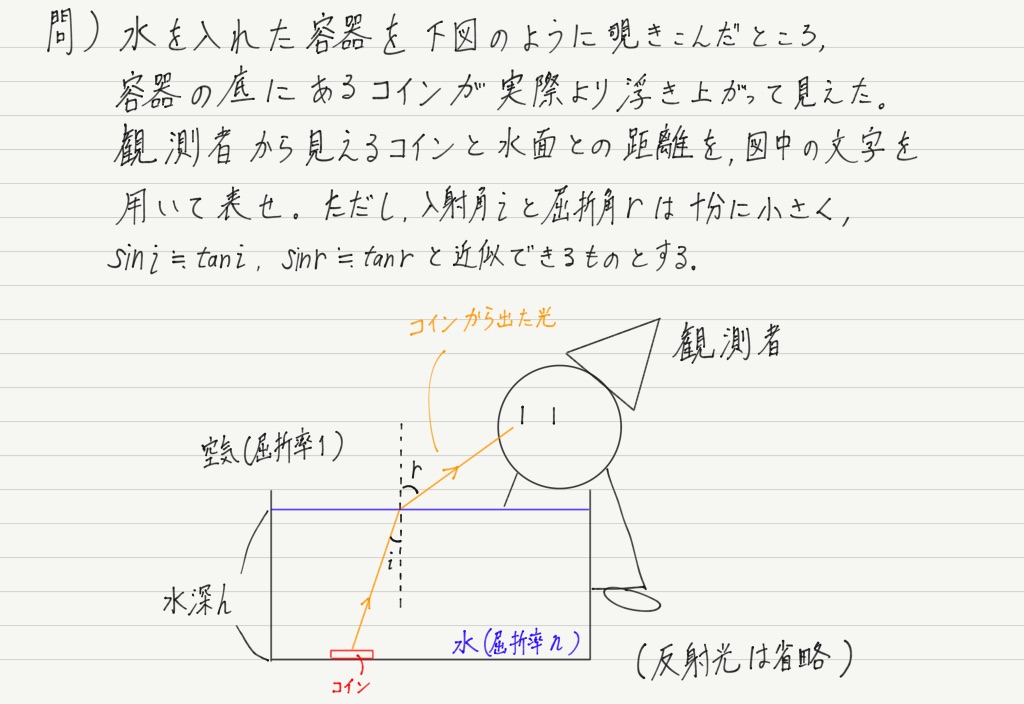 問) 水を入れた容器を下図のように覗きこんだところ,
容器の底にあるコインが実際より浮き上がって見えた。
観測者から見えるコインと水面との距離を,図中の文字を
用いて表せ。ただし,入射角iと屈折角rは十分に小さく,
sini≒tani, sinr≒tanrと近似できるものとする.
コインから出た光
観測者
空気(屈折率1)
r
i
水深h
水(屈折率n)
コイン
(反射光は省略)